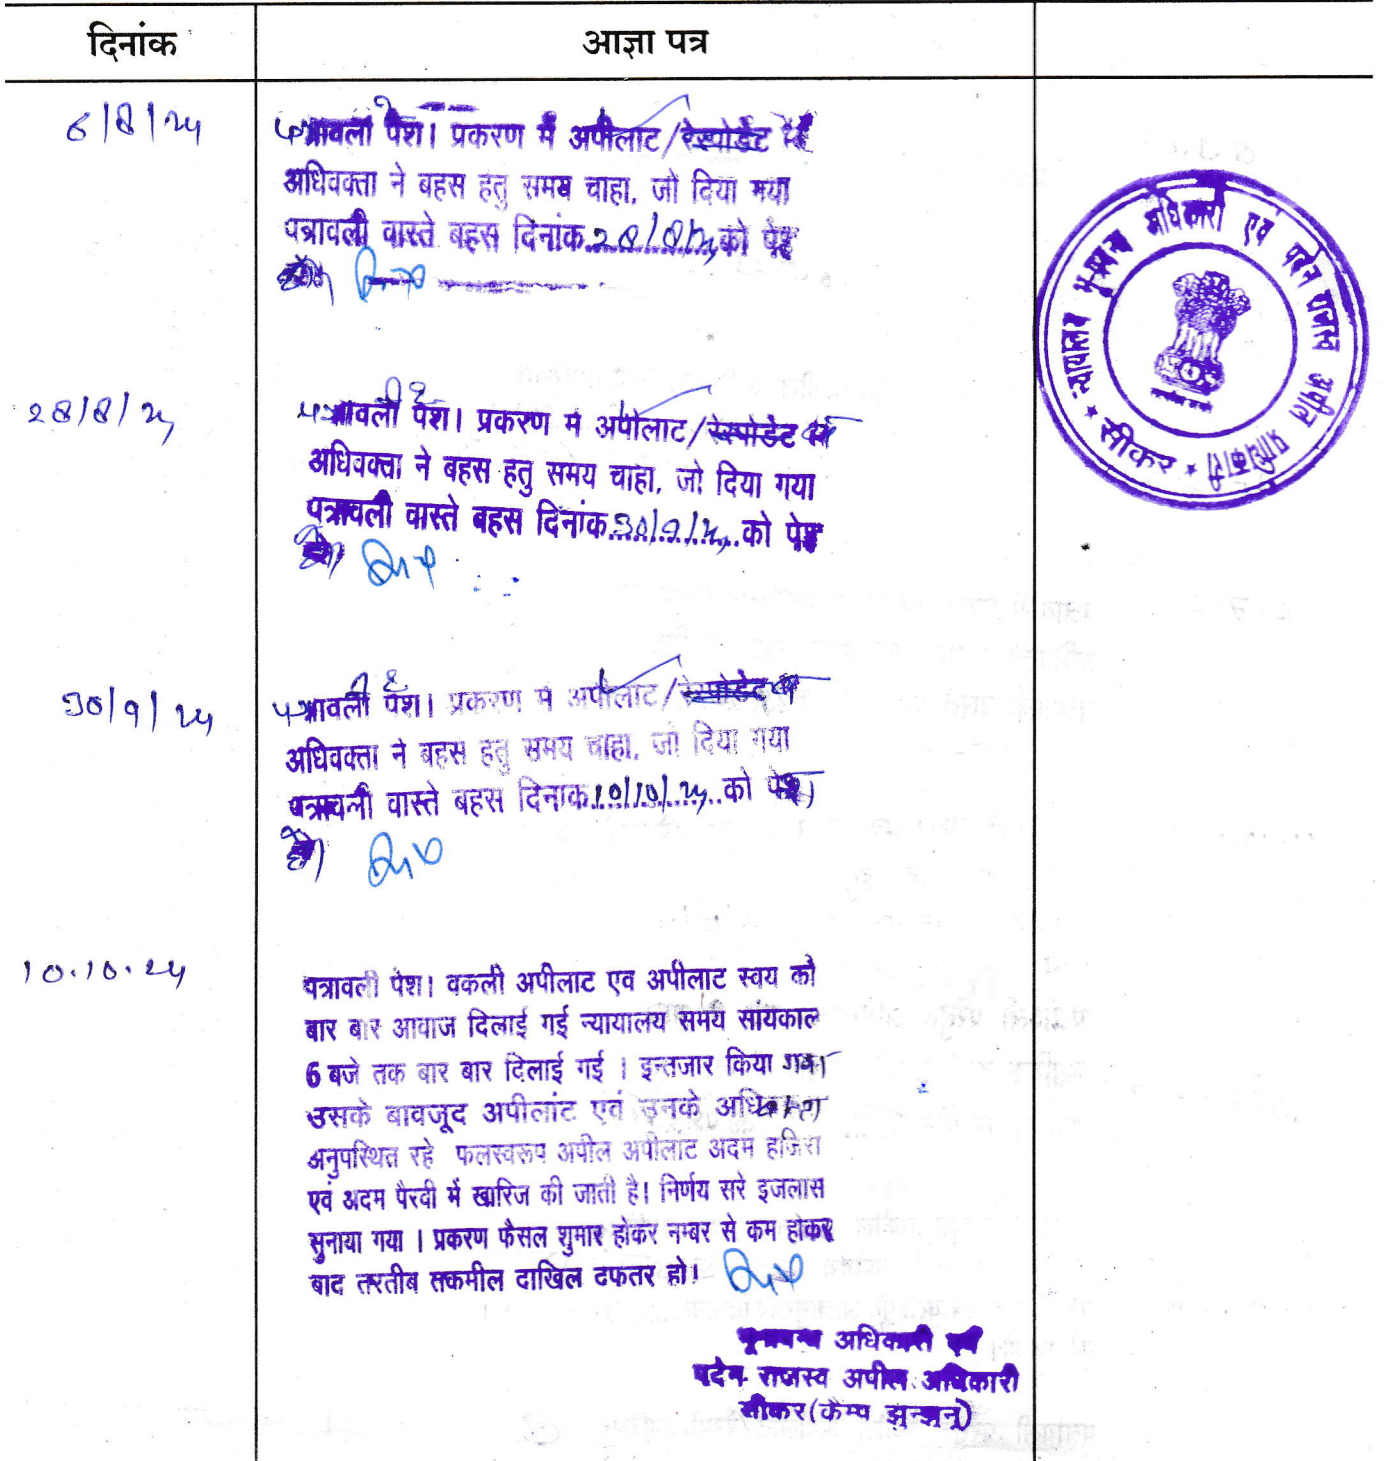 दिनांक
आज्ञा पत्र
6/8/24
पत्रावली पेश। प्रकरण में अपीलाट/रेस्पोडेट के
अधिवक्ता ने बहस हतु समय चाहा, जो दिया गया
पत्रावली वास्ते बहस दिनांक 28/8/24 को पेश
हो।
28/8/24
पत्रावली पेश। प्रकरण में अपीलाट/रेस्पोडेट के
अधिवक्ता ने बहस हतु समय चाहा, जो दिया गया
पत्रावली वास्ते बहस दिनांक 30/9/24 को पेश
हो।
30/9/24
पत्रावली पेश। प्रकरण में अपीलाट/रेस्पोडेट के
अधिवक्ता ने बहस हतु समय चाहा, जो दिया गया
पत्रावली वास्ते बहस दिनांक 10/10/24 को पेश
हो।
10.10.24
पत्रावली पेश। वकली अपीलाट एव अपीलाट स्वय को
बार बार आवाज दिलाई गई न्यायालय समय सांयकाल
6 बजे तक बार बार दिलाई गई । इन्तजार किया गया
उसके बावजूद अपीलांट एवं उनके अधिवक्ता
अनुपस्थित रहे फलस्वरूप अपील अपीलांट अदम हाजिरी
एवं अदम पैरवी में खारिज की जाती है। निर्णय सरे इजलास
सुनाया गया । प्रकरण फैसल शुमार होकर नम्बर से कम होकर
बाद तरतीब तकमील दाखिल दफतर हो।
भूप्रबन्ध अधिकारी एवं
पदेन राजस्व अपील अधिकारी
सीकर (कैम्प झुन्झुनू)
न्यायालय भू-प्रबन्ध अधिकारी एवं पदेन राजस्व अपील प्राधिकारी
★ सीकर ★